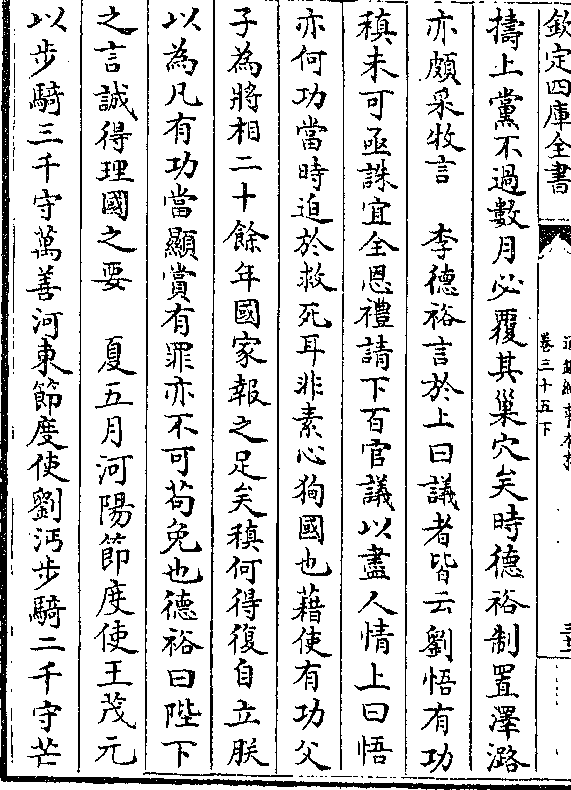 欽定四庫全書
卷三十五下
擣上黨不過數月必覆其巢穴矣時德裕制置澤潞
亦頗采牧言 李德裕言於上曰議者皆云劉悟有功
稹未可亟誅宜全恩禮請下百官議以盡人情上曰悟
亦何功當時迫於救死耳非素心狥國也藉使有功父
子為將相二十餘年國家報之足矣稹何得復自立朕
以為凡有功當顯賞有罪亦不可苟免也德裕曰陛下
之言誠得理國之要 夏五月河陽節度使王茂元
以步騎三千守萬善河東節度使劉沔步騎二千守芒